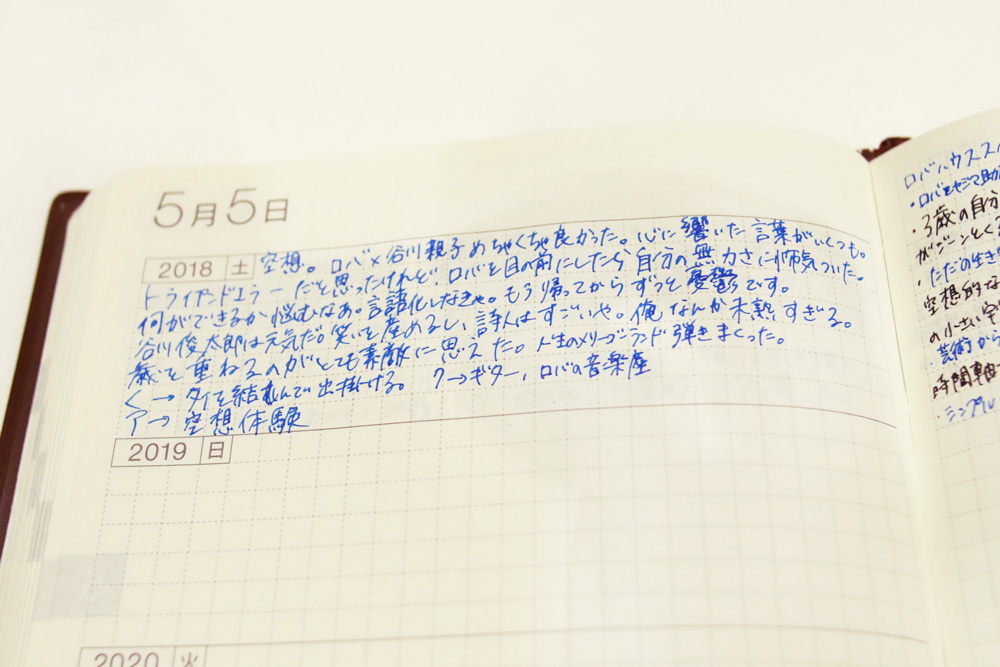 5月5日
2018 土 空想。ロバ×谷川親子めちゃくちゃ良かった。心に響いた言葉がいくつも。
トライアンドエラーだと思ったけれど、ロバを目の前にしたら自分の無力さに怖気づいた。
何ができるか悩むなあ。言語化しなきゃ。もう帰ってからずっと憂鬱です。
谷川俊太郎は元気だ。笑いを産めるし、詩人はすごいや。俺なんか未熟すぎる。
歳を重ねるのがとても素敵に思えた。人生のメリーゴーランド弾きまくった。
く→タイを結んで出掛ける。 ク→ギター、ロバの音楽座
ア→空想体験
2019 日
2020 火
ロバハウス
・ロバを
・3歳の自分
がジンとくる
・ただの生き
空想的な
の小さい空
芸術から
時間軸
・シンプル